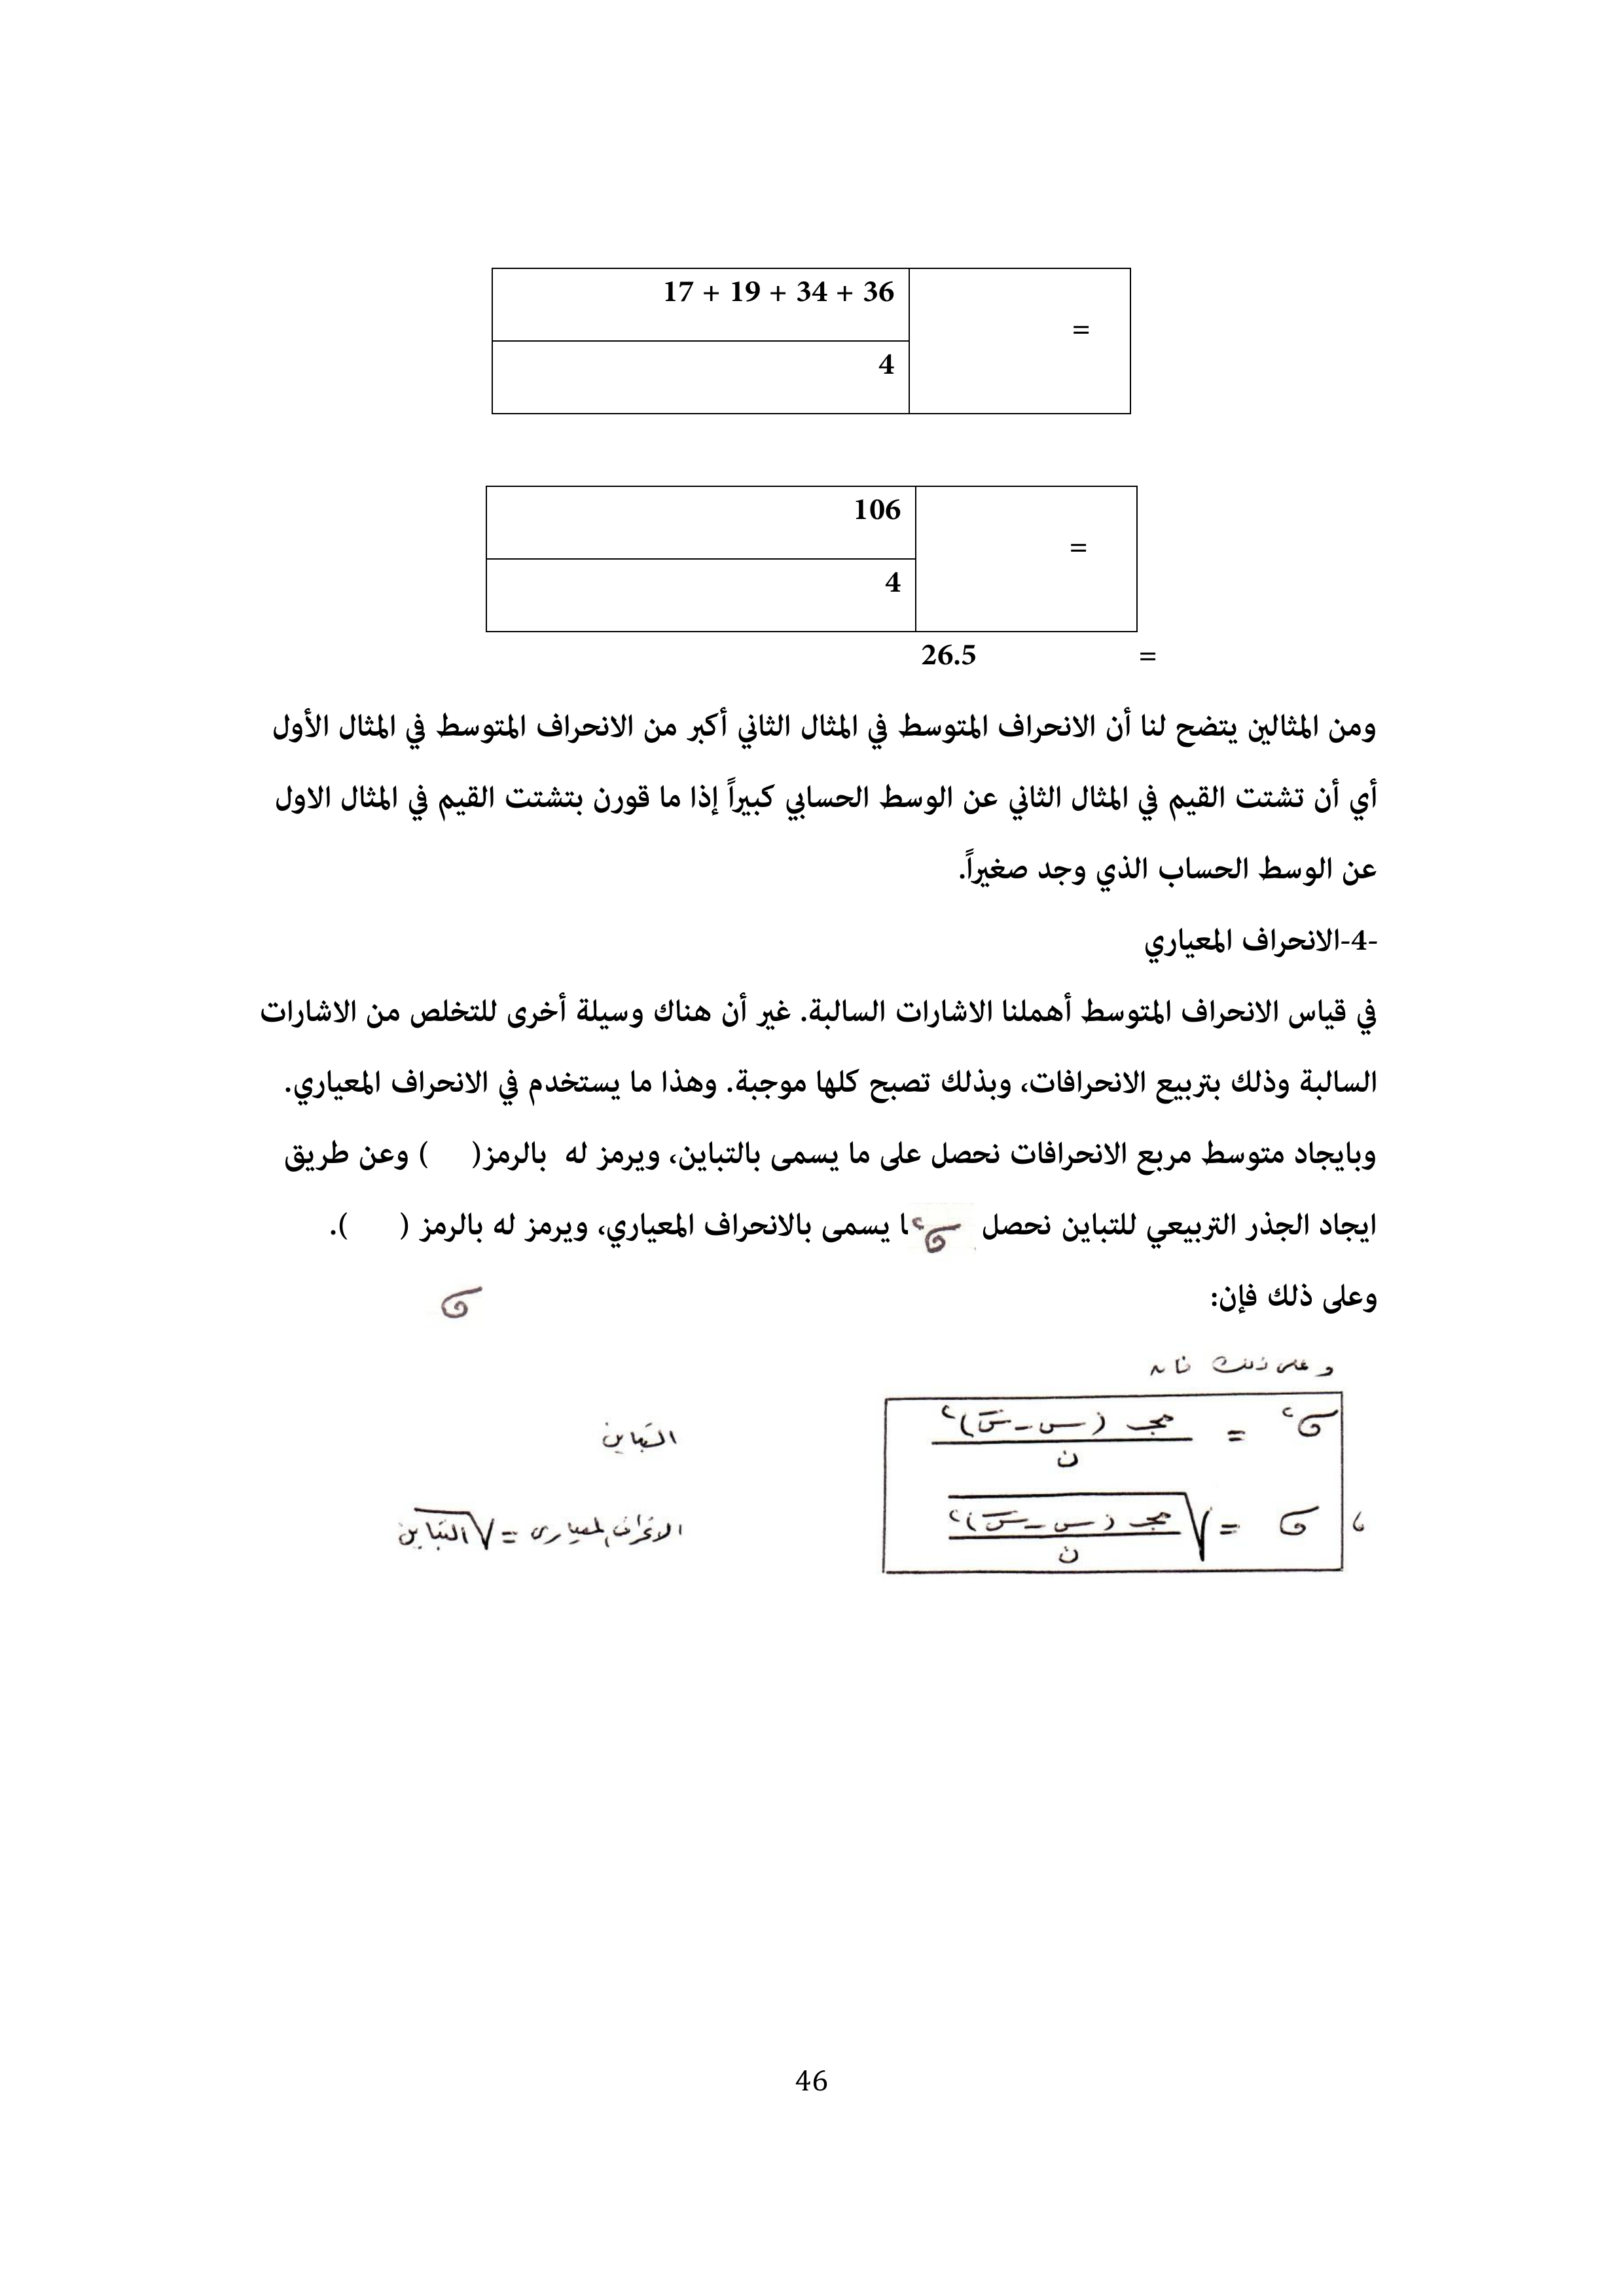 17 + 19 + 34 + 36
=
4
106
=
4
= 26.5
ومن المثالين يتضح لنا أن الانحراف المتوسط في المثال الثاني أكبر من الانحراف المتوسط في المثال الأول
أي أن تشتت القيم في المثال الثاني عن الوسط الحسابي كبيراً إذا ما قورن بتشتت القيم في المثال الاول
عن الوسط الحساب الذي وجد صغيراً.
-4-الانحراف المعياري
في قياس الانحراف المتوسط أهملنا الاشارات السالبة. غير أن هناك وسيلة أخرى للتخلص من الاشارات
السالبة وذلك بتربيع الانحرافات، وبذلك تصبح كلها موجبة. وهذا ما يستخدم في الانحراف المعياري.
وبايجاد متوسط مربع الانحرافات نحصل على ما يسمى بالتباين، ويرمز له بالرمز( ) وعن طريق
ايجاد الجذر التربيعي للتباين نحصل σ٢ ا يسمى بالانحراف المعياري، ويرمز له بالرمز ( ).
وعلى ذلك فإن: σ
وعلى ذلك فان
σ٢ = مجـ (س - س̄)٢ / ن التباين
، σ = √ مجـ (س - س̄)٢ / ن الانحراف المعيارى = √التباين
46